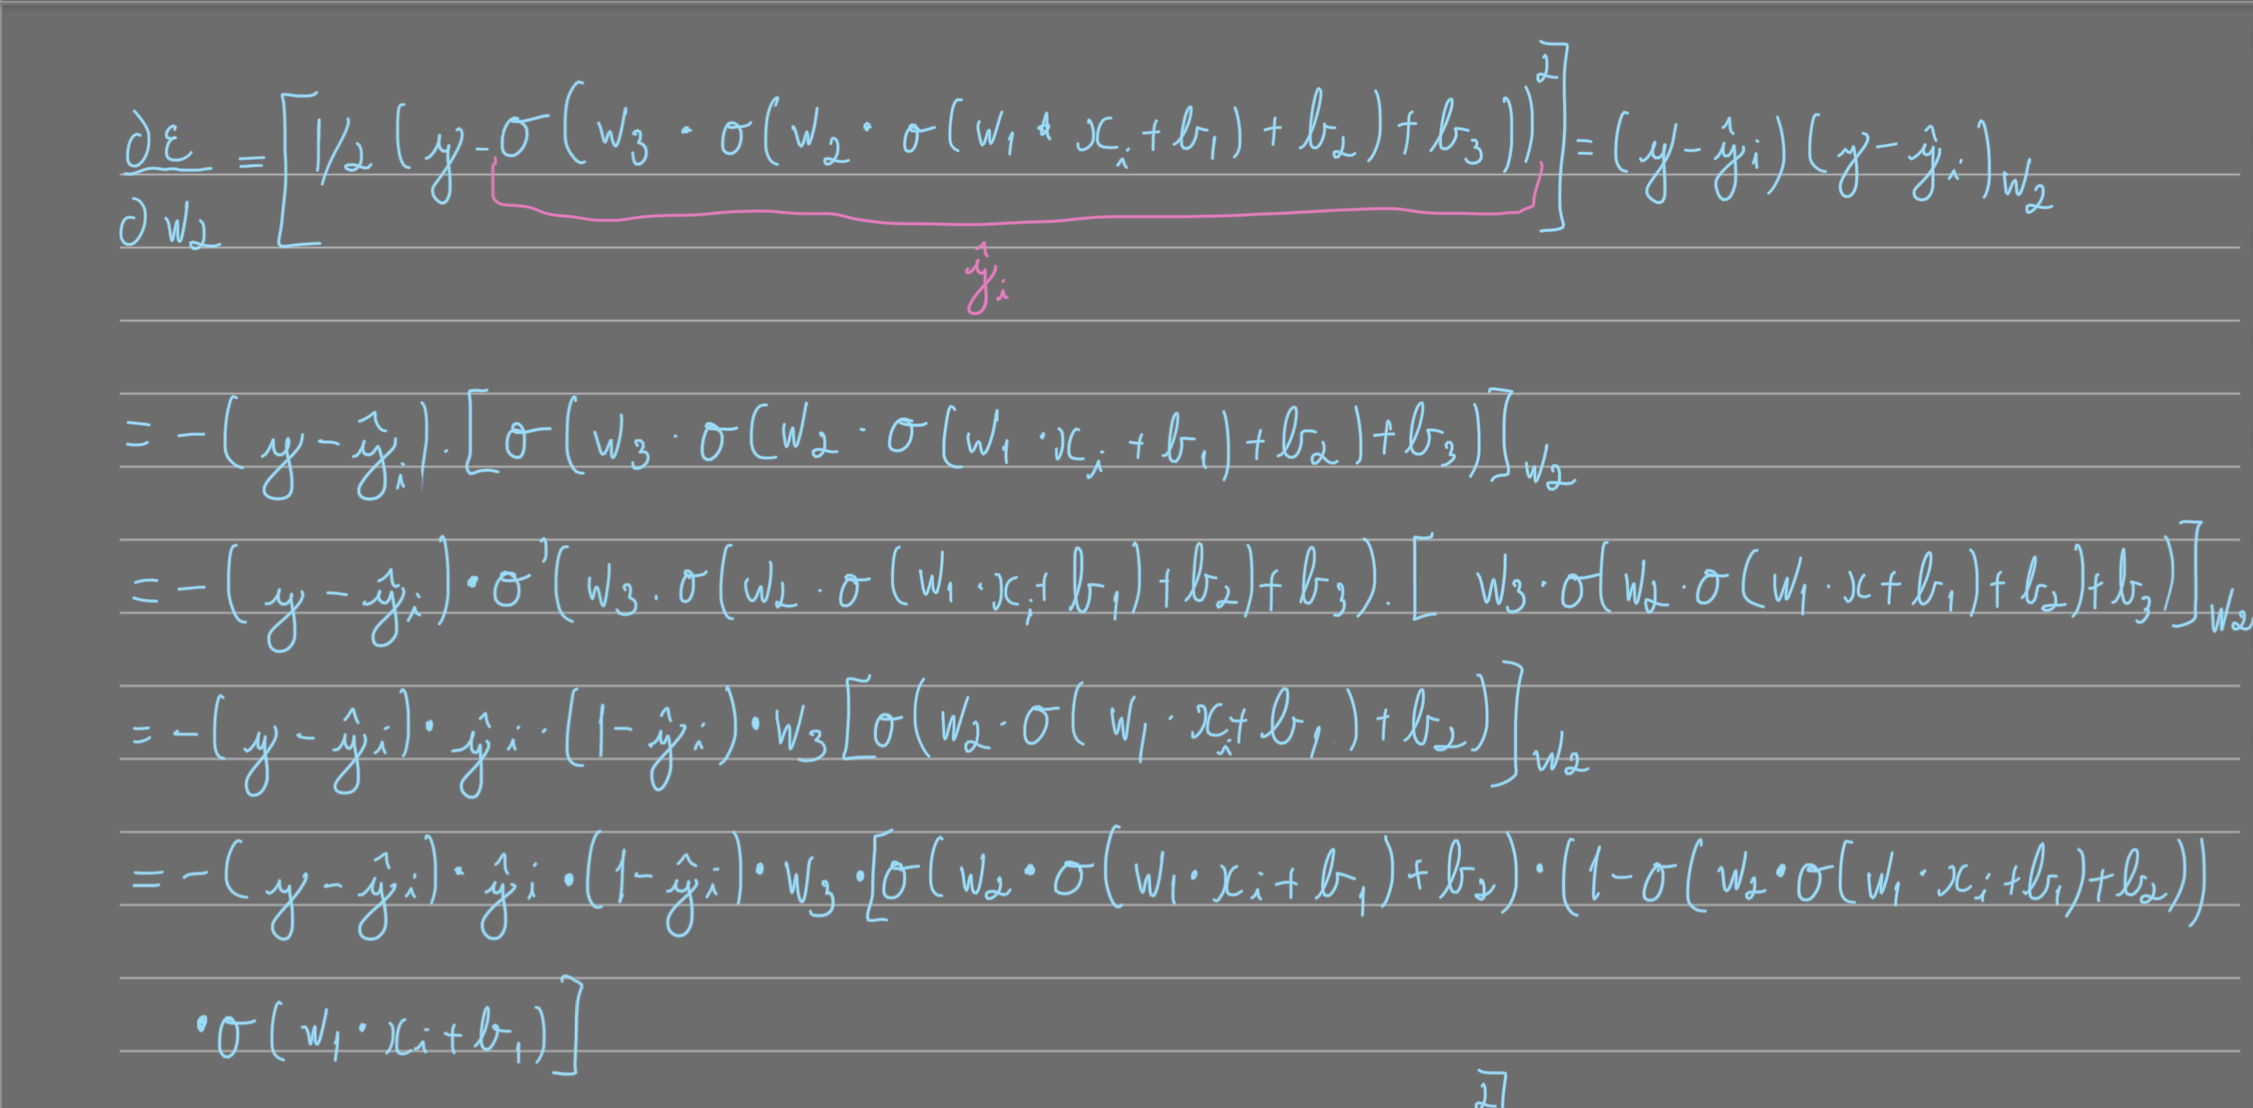 ∂ε/∂w₂ = [1/2 (y - σ(w₃ · σ(w₂ · σ(w₁ · xᵢ + b₁) + b₂) + b₃))²] = (y - ŷᵢ)(y - ŷᵢ)_w₂
ŷᵢ
= -(y - ŷᵢ) · [σ(w₃ · σ(w₂ · σ(w₁ · xᵢ + b₁) + b₂) + b₃)]_w₂
= -(y - ŷᵢ) · σ'(w₃ · σ(w₂ · σ(w₁ · xᵢ + b₁) + b₂) + b₃) · [w₃ · σ(w₂ · σ(w₁ · x + b₁) + b₂) + b₃)]_w₂
= -(y - ŷᵢ) · ŷᵢ · (1 - ŷᵢ) · w₃ [σ(w₂ · σ(w₁ · xᵢ + b₁) + b₂)]_w₂
= -(y - ŷᵢ) · ŷᵢ · (1 - ŷᵢ) · w₃ · [σ(w₂ · σ(w₁ · xᵢ + b₁) + b₂) · (1 - σ(w₂ · σ(w₁ · xᵢ + b₁) + b₂))
· σ(w₁ · xᵢ + b₁)]
2]